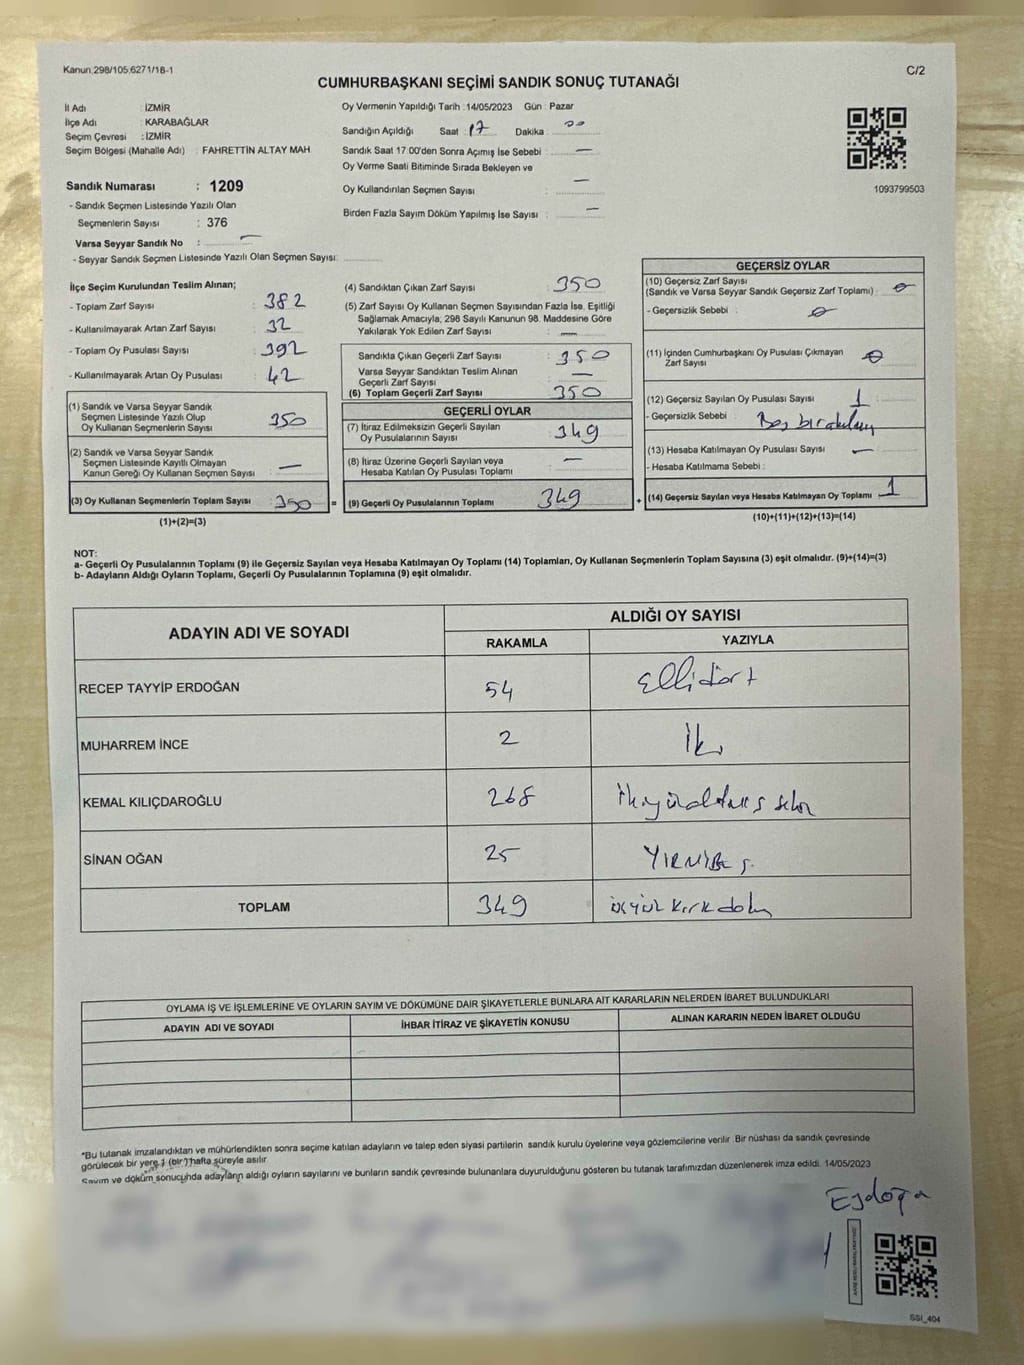 Kanun 298/105,6271/1B-1
C/2
CUMHURBAŞKANI SEÇİMİ SANDIK SONUÇ TUTANAĞI
İl Adı : İZMİR
İlçe Adı : KARABAĞLAR
Seçim Çevresi : İZMİR
Seçim Bölgesi (Mahalle Adı) : FAHRETTİN ALTAY MAH
Sandık Numarası : 1209
- Sandık Seçmen Listesinde Yazılı Olan
Seçmenlerin Sayısı : 376
Varsa Seyyar Sandık No : —
- Seyyar Sandık Seçmen Listesinde Yazılı Olan Seçmen Sayısı:
Oy Vermenin Yapıldığı Tarih : 14/05/2023 Gün : Pazar
Sandığın Açıldığı Saat : 17 Dakika : 00
Sandık Saat 17:00'den Sonra Açımış İse Sebebi : —
Oy Verme Saati Bitiminde Sırada Bekleyen ve
Oy Kullandırılan Seçmen Sayısı : —
Birden Fazla Sayım Döküm Yapılmış İse Sayısı : —
1093799503
İlçe Seçim Kurulundan Teslim Alınan;
- Toplam Zarf Sayısı : 382
- Kullanılmayarak Artan Zarf Sayısı : 32
- Toplam Oy Pusulası Sayısı : 392
- Kullanılmayarak Artan Oy Pusulası : 42
(1) Sandık ve Varsa Seyyar Sandık
Seçmen Listesinde Yazılı Olup
Oy Kullanan Seçmenlerin Sayısı : 350
(2) Sandık ve Varsa Seyyar Sandık
Seçmen Listesinde Kayıtlı Olmayan
Kanun Gereği Oy Kullanan Seçmen Sayısı : —
(3) Oy Kullanan Seçmenlerin Toplam Sayısı : 350
(1)+(2)=(3)
(4) Sandıktan Çıkan Zarf Sayısı : 350
(5) Zarf Sayısı Oy Kullanan Seçmen Sayısından Fazla İse, Eşitliği
Sağlamak Amacıyla, 298 Sayılı Kanunun 98. Maddesine Göre
Yakılarak Yok Edilen Zarf Sayısı : —
Sandıkta Çıkan Geçerli Zarf Sayısı : 350
Varsa Seyyar Sandıktan Teslim Alınan
Geçerli Zarf Sayısı : —
(6) Toplam Geçerli Zarf Sayısı : 350
GEÇERLİ OYLAR
(7) İtiraz Edilmeksizin Geçerli Sayılan
Oy Pusulalarının Sayısı : 349
(8) İtiraz Üzerine Geçerli Sayılan veya
Hesaba Katılan Oy Pusulası Toplamı : —
= (9) Geçerli Oy Pusulalarının Toplamı 349
GEÇERSİZ OYLAR
(10) Geçersiz Zarf Sayısı
(Sandık ve Varsa Seyyar Sandık Geçersiz Zarf Toplamı) : 0
- Geçersizlik Sebebi : 0
(11) İçinden Cumhurbaşkanı Oy Pusulası Çıkmayan
Zarf Sayısı : 0
(12) Geçersiz Sayılan Oy Pusulası Sayısı : 1
- Geçersizlik Sebebi : Boş bırakılan
(13) Hesaba Katılmayan Oy Pusulası Sayısı : —
- Hesaba Katılmama Sebebi :
+ (14) Geçersiz Sayılan veya Hesaba Katılmayan Oy Toplamı 1
(10)+(11)+(12)+(13)=(14)
NOT:
a- Geçerli Oy Pusulalarının Toplamı (9) ile Geçersiz Sayılan veya Hesaba Katılmayan Oy Toplamı (14) Toplamları, Oy Kullanan Seçmenlerin Toplam Sayısına (3) eşit olmalıdır. (9)+(14)=(3)
b- Adayların Aldığı Oyların Toplamı, Geçerli Oy Pusulalarının Toplamına (9) eşit olmalıdır.
ADAYIN ADI VE SOYADI ALDIĞI OY SAYISI
RAKAMLA YAZIYLA
RECEP TAYYİP ERDOĞAN 54 Ellidört
MUHARREM İNCE 2 İki
KEMAL KILIÇDAROĞLU 268 İkiyüzaltmış sekiz
SİNAN OĞAN 25 YİRMİBEŞ
TOPLAM 349 üçyüz kırk dokuz
OYLAMA İŞ VE İŞLEMLERİNE VE OYLARIN SAYIM VE DÖKÜMÜNE DAİR ŞİKAYETLERLE BUNLARA AİT KARARLARIN NELERDEN İBARET BULUNDUKLARI
ADAYIN ADI VE SOYADI İHBAR İTİRAZ VE ŞİKAYETİN KONUSU ALINAN KARARIN NEDEN İBARET OLDUĞU
*Bu tutanak imzalandıktan ve mühürlendikten sonra seçime katılan adayların ve talep eden siyasi partilerin sandık kurulu üyelerine veya gözlemcilerine verilir. Bir nüshası da sandık çevresinde
görülecek bir yere 1 (bir) hafta süreyle asılır.
Sayım ve döküm sonucunda adayların aldığı oyların sayılarını ve bunların sandık çevresinde bulunanlara duyurulduğunu gösteren bu tutanak tarafımızdan düzenlenerek imza edildi. 14/05/2023
SSI_404